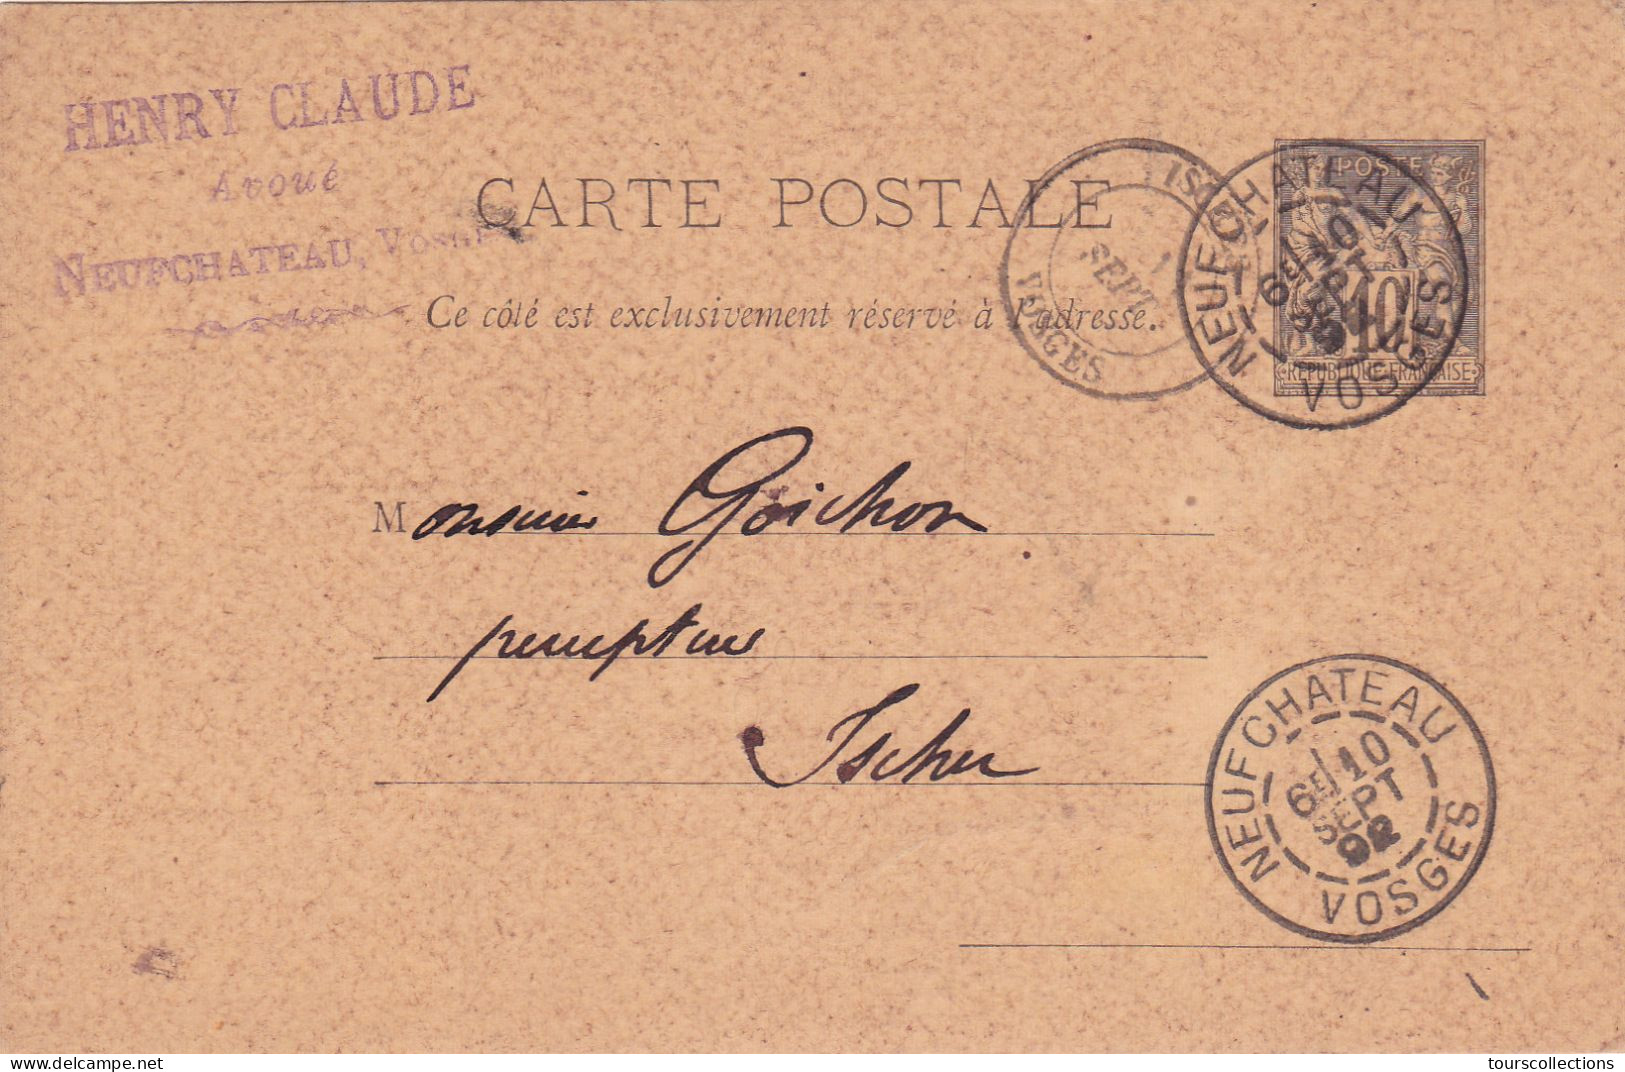 HENRY CLAUDE
Avoué
NEUFCHATEAU, VOSGES
CARTE POSTALE
Ce côté est exclusivement réservé à l'adresse.
ISCHES
SEPT
VOSGES
NEUFCHATEAU
6E 10
SEPT
92
VOSGES
POSTE
10
REPUBLIQUE FRANÇAISE
Monsieur Goichon
percepteur
Isches
NEUFCHATEAU
6E 10
SEPT
92
VOSGES
tourscollections